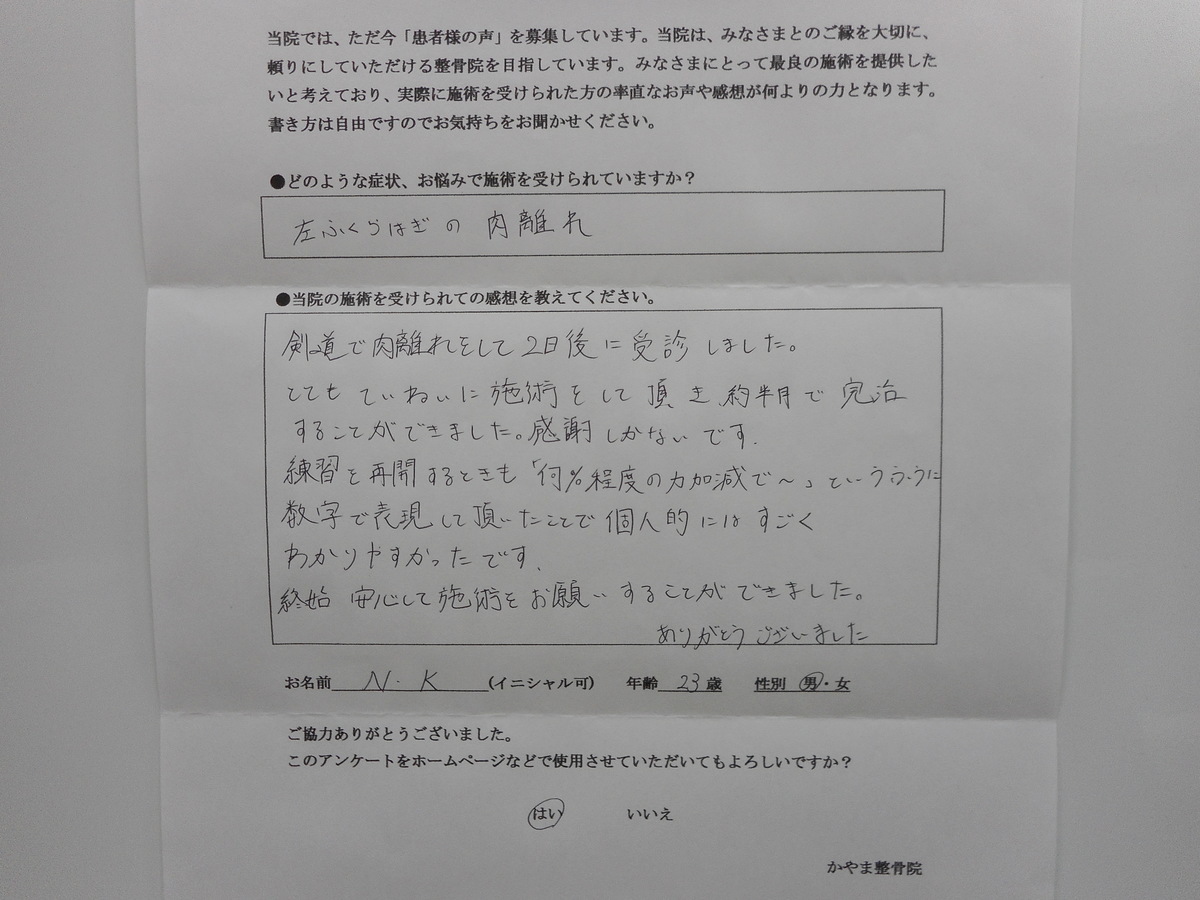 当院では、ただ今「患者様の声」を募集しています。当院は、みなさまとのご縁を大切に、
頼りにしていただける整骨院を目指しています。みなさまにとって最良の施術を提供した
いと考えており、実際に施術を受けられた方の率直なお声や感想が何よりの力となります。
書き方は自由ですのでお気持ちをお聞かせください。
●どのような症状、お悩みで施術を受けられていますか？
左ふくらはぎの肉離れ
●当院の施術を受けられての感想を教えてください。
剣道で肉離れをして2日後に受診しました。
とてもていねいに施術をして頂き、約半月で完治
することができました。感謝しかないです。
練習を再開するときも「何%程度の力加減で〜」というふうに
数字で表現して頂いたことで個人的にはすごく
わかりやすかったです。
終始安心して施術をお願いすることができました。
ありがとうございました
お名前 N・K (イニシャル可) 年齢 23 歳 性別 男・女
ご協力ありがとうございました。
このアンケートをホームページなどで使用させていただいてもよろしいですか？
はい いいえ
かやま整骨院